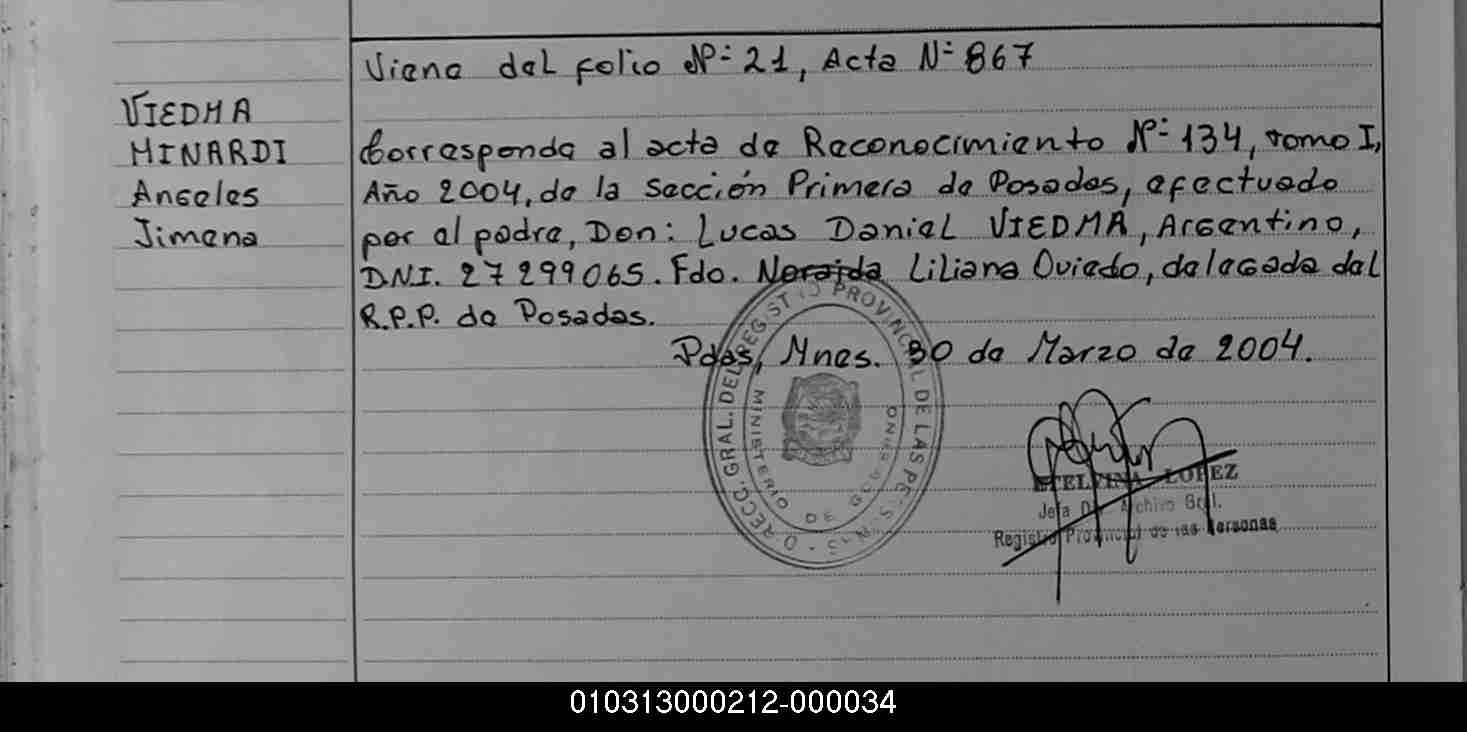 Viene del folio Nº 21, Acta Nº 867
VIEDMA
MINARDI
Angeles
Jimena
Corresponde al acta de Reconocimiento Nº 134, tomo I,
Año 2004, de la Sección Primera de Posadas, efectuado
por el padre, Don: Lucas Daniel VIEDMA, Argentino,
DNI. 27299065. Fdo. Neraida Liliana Oviedo, delegada del
R.P.P. de Posadas.
Pdas, Mnes. 30 de Marzo de 2004.
GRAL. DEL REGISTRO PROVINCIAL DE LAS PERSONAS
MINISTERIO DE GOBIERNO
ETELVINA LOPEZ
Jefa Archivo Gral.
Registro Provincial de las Personas
010313000212-000034